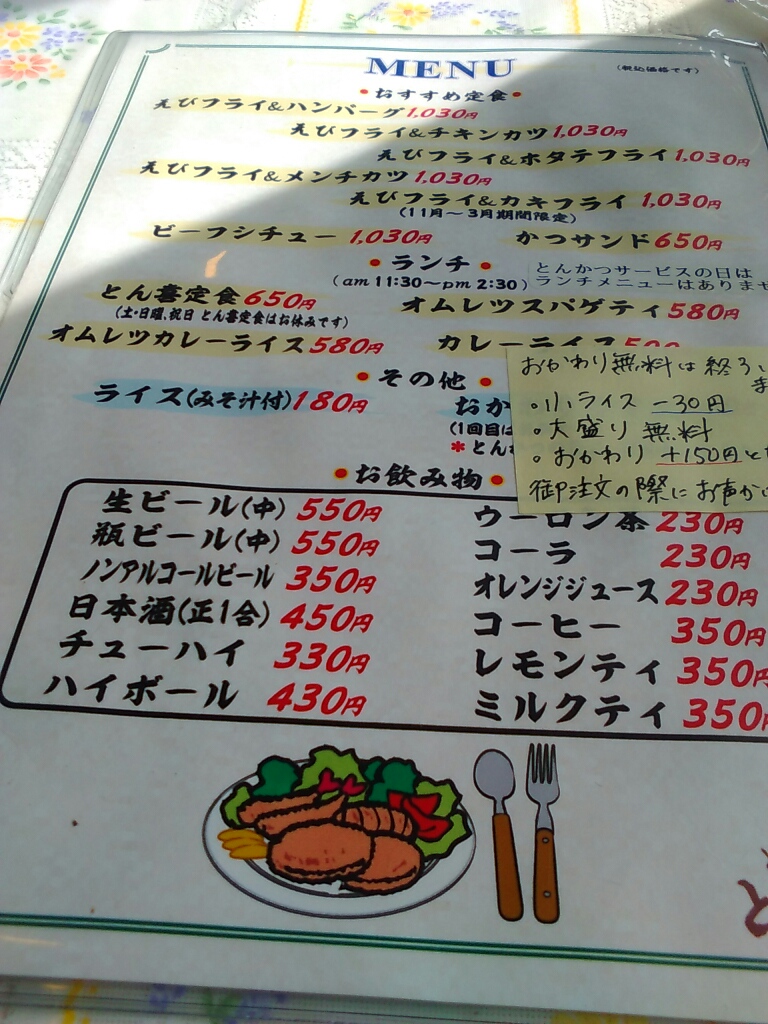 MENU
(税込価格です)
おすすめ定食
えびフライ&ハンバーグ1,030円
えびフライ&チキンカツ1,030円
えびフライ&ホタテフライ1,030円
えびフライ&メンチカツ1,030円
えびフライ&カキフライ 1,030円
(11月〜3月期間限定)
ビーフシチュー 1,030円
かつサンド650円
ランチ
(am 11:30〜pm 2:30)
とんかつサービスの日は
ランチメニューはありませ
とん喜定食650円
(土・日曜、祝日 とん喜定食はお休みです)
オムレツスパゲティ580円
オムレツカレーライス580円
カレーライス
その他
ライス(みそ汁付)180円
おか
(1回目は
*とん
おかわり無料は終
・小ライス −30円
・大盛り 無料
・おかわり +150円と
御注文の際にお声が
お飲み物
生ビール(中) 550円
瓶ビール(中) 550円
ノンアルコールビール 350円
日本酒(正1合) 450円
チューハイ 330円
ハイボール 430円
ウーロン茶230円
コーラ 230円
オレンジジュース230円
コーヒー 350円
レモンティ 350円
ミルクティ 350円